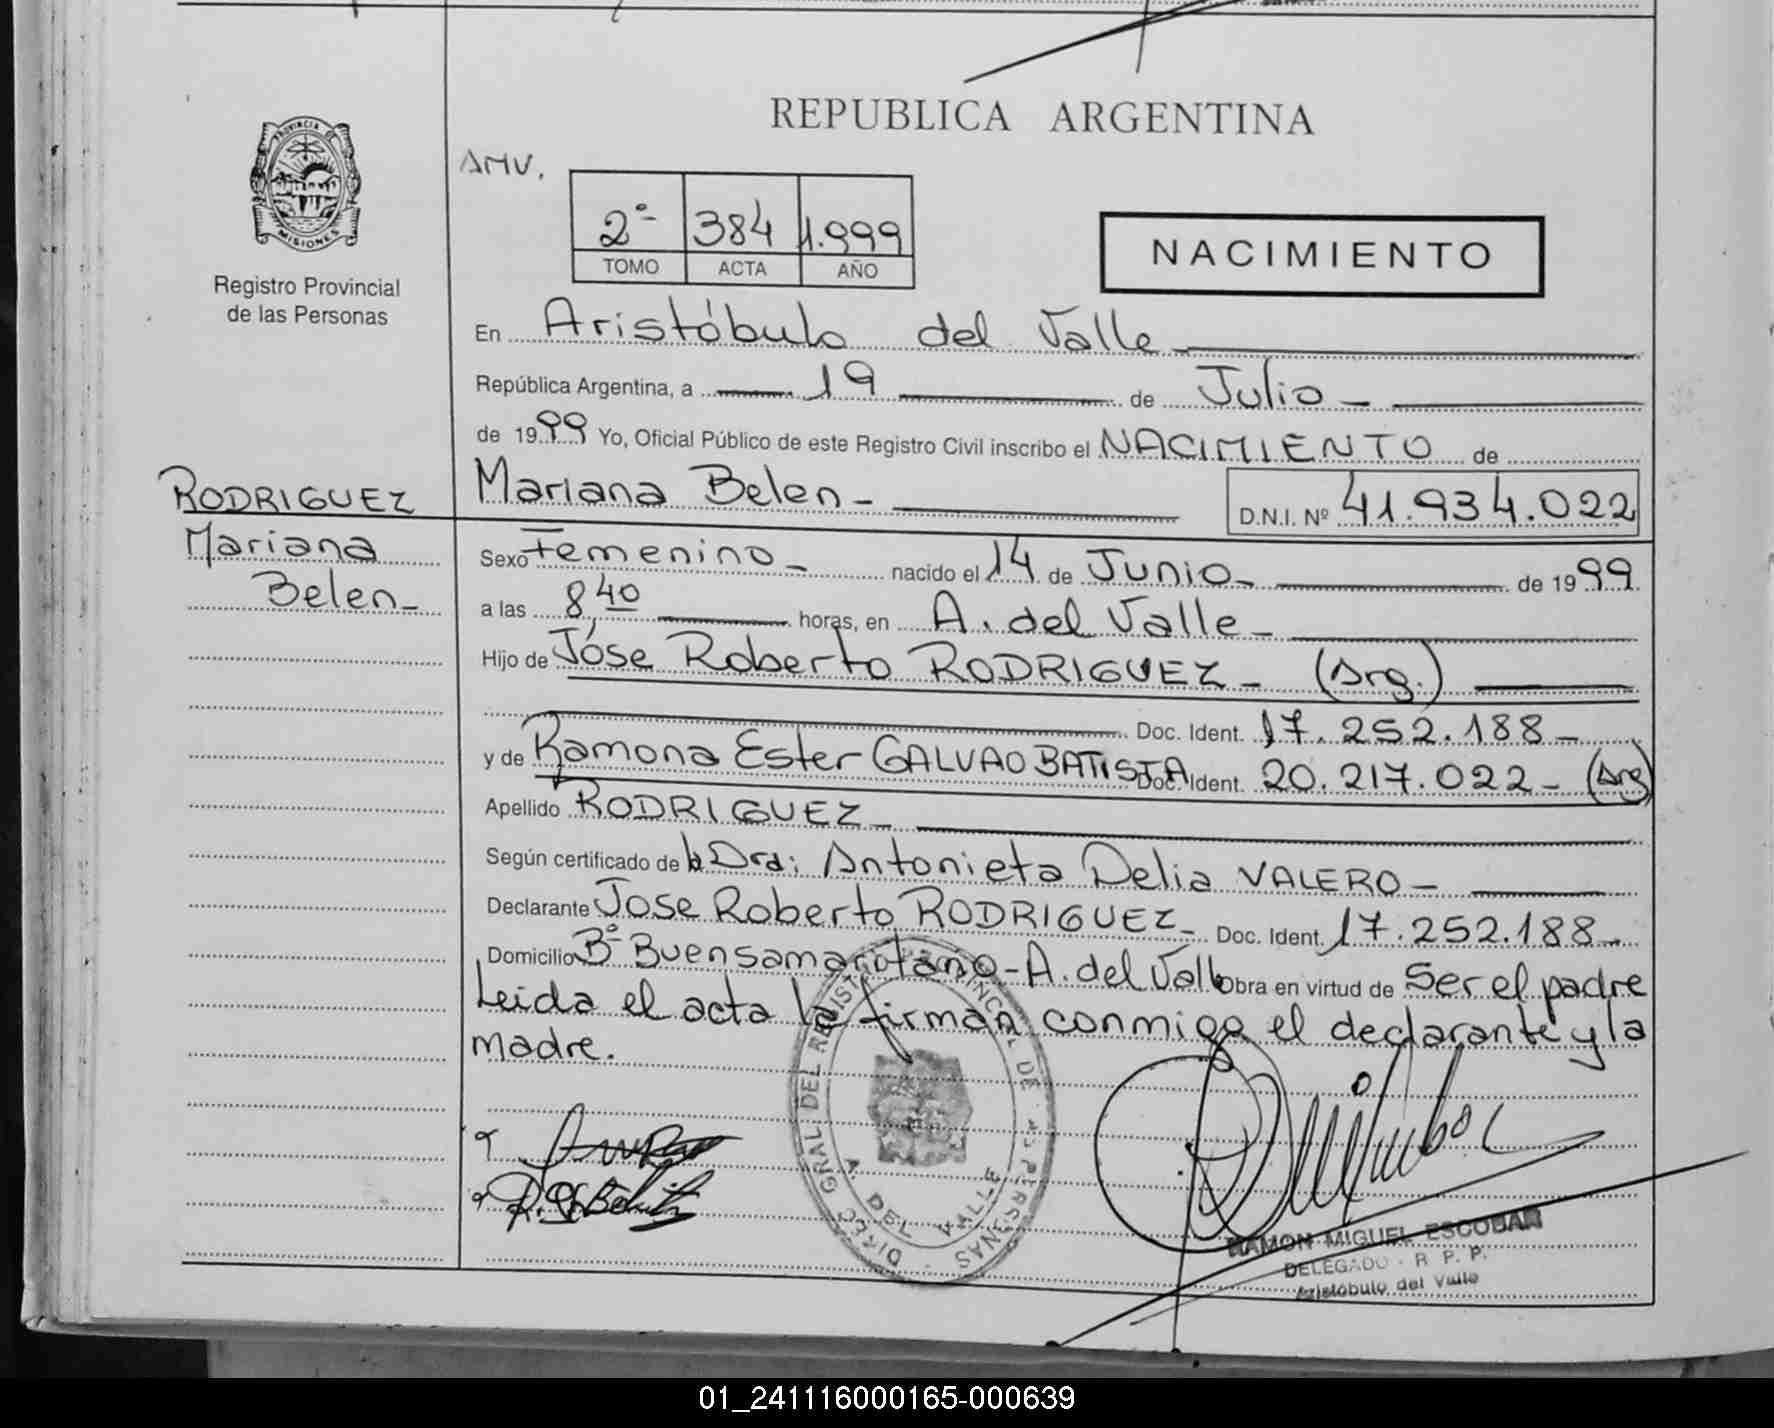 REPUBLICA ARGENTINA
PROVINCIA DE
MISIONES
Registro Provincial
de las Personas
AMV.
2º 384 1.999
TOMO ACTA AÑO
NACIMIENTO
En Aristóbulo del Valle
República Argentina, a 19 de Julio
de 1999 Yo, Oficial Público de este Registro Civil inscribo el NACIMIENTO de
RODRIGUEZ
Mariana
Belen
Mariana Belen
D.N.I. Nº 41.934.022
Sexo Femenino nacido el 14 de Junio de 1999
a las 8,40 horas, en A. del Valle
Hijo de Jóse Roberto RODRIGUEZ (Arg.)
Doc. Ident. 17.252.188
y de Ramona Ester GALVAO BATISTA Doc. Ident. 20.217.022 (Arg)
Apellido RODRIGUEZ
Según certificado de la Dra: Antonieta Delia VALERO
Declarante Jose Roberto RODRIGUEZ Doc. Ident. 17.252.188
Domicilio Bº Buen samaritano - A. del Valle obra en virtud de Ser el padre
Leida el acta la firman conmigo el declarante y la
madre.
DIREC. GRAL DEL REGISTRO PROVINCIAL DE LAS PERSONAS
A. DEL VALLE
RAMON MIGUEL ESCOBAR
DELEGADO - R. P. P.
Aristóbulo del Valle
01_241116000165-000639